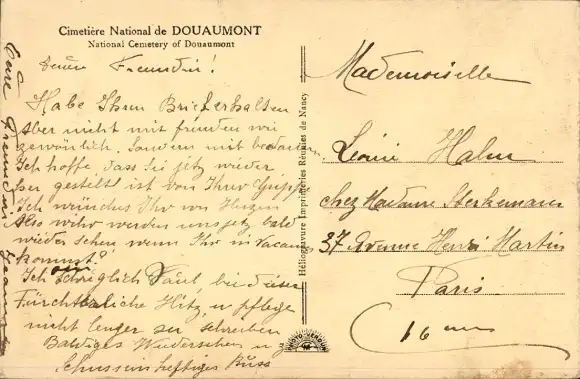 Cimetière National de DOUAUMONT
National Cemetery of Douaumont
Freundin!
Habe Ihren Brief erhalten
Aber nicht mit freuden wie
gewönlich. Sondern mit bedauern
Ich hoffe dass Sie jetz wieder
her gestelt ist von Ihrer Gruppe
Ich wünches Ihr von Herzen
Also wihr werden uns jetz bald
wieder sehen wenn Ihr in Vacanz
kommst?
Ich bin schriglich Faul, bei diese
Fürchtbaliche Hitz, u pflege
nicht lenger zu schreiben
Baldiges Wiedersehen u
Kuss
Héliogravure Imprimeries Réunies de Nancy
PHOTO-VERDUN
Mademoiselle
Léonie Hahn
chez Madame Sterkeman
37 Avenue Henri Martin
Paris
16 em